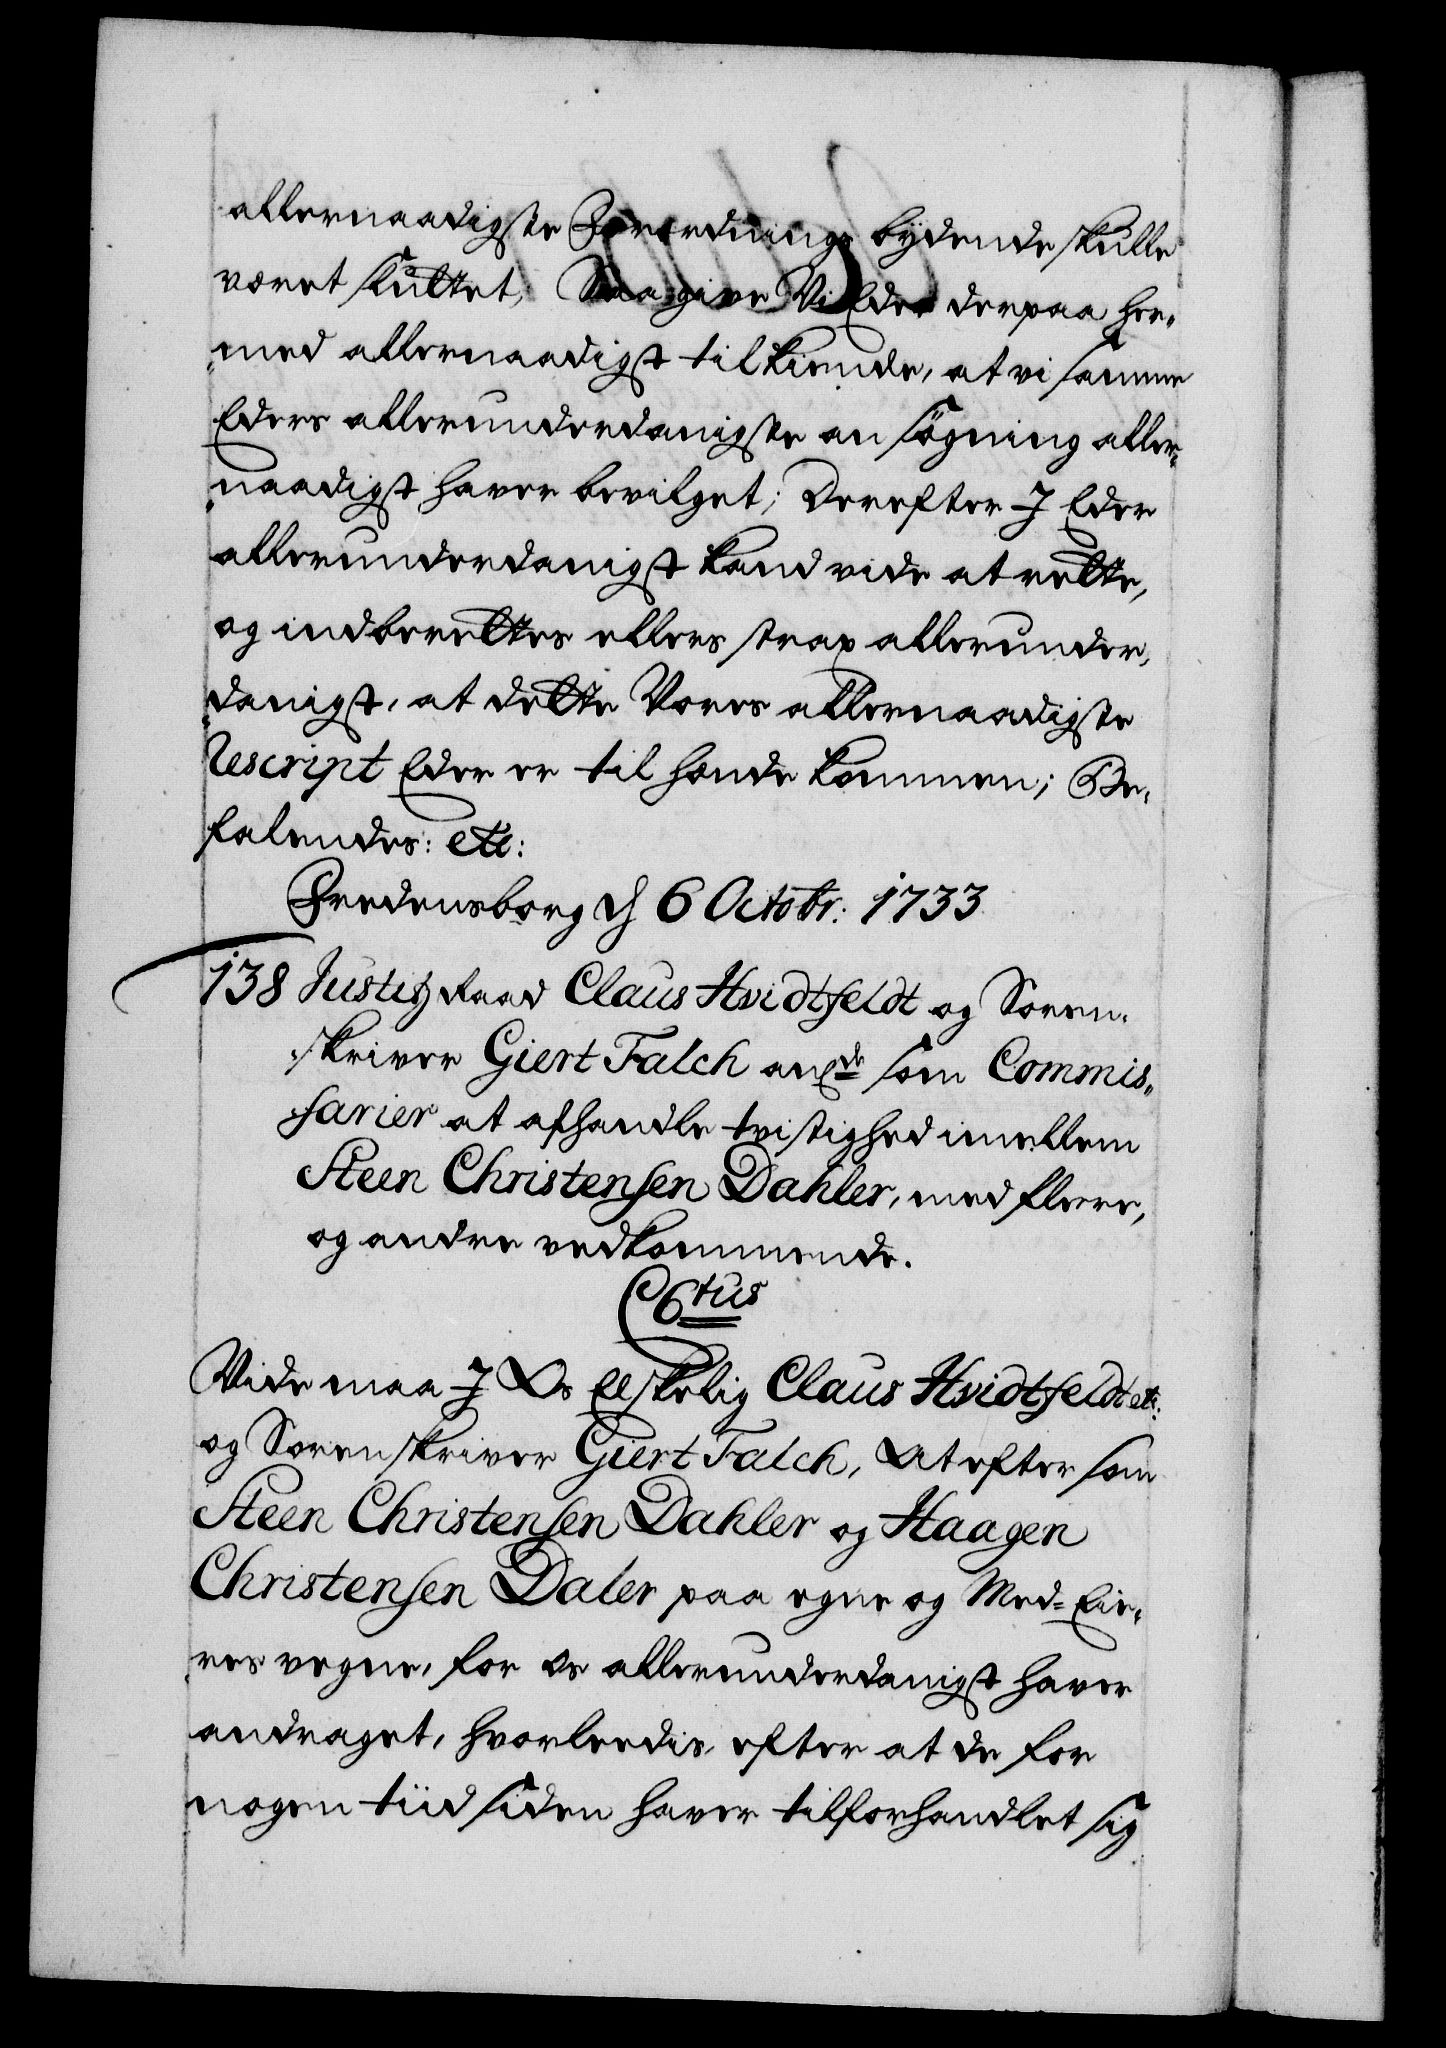 allernaadigste Forordnings bydende skulle
været skuttet, Saa give Vi Eder derpaa her„
„med allernaadigst tilkiende, at vi samme
Eders allerunderdanigste ansøgning aller„
„naadigst haver bevilget; Derefter I Eder
allerunderdanigst kand vide at rette,
og indberettes ellers strax allerunder„
„danigst, at dette Vores allernaadigste
Rescript Eder er til hænde kommen; Be„
falendes: etc:
Fredensborg d 6 Octobr: 1733
138 Justitz Raad Claus Hvidtfeldt og Soren„
„skriver Giert Falch anₓde som Commis„
„sarier at afhandle tvistighed imellem
Steen Christensen Dahler, med flere,
og andre vedkommende.
C 6tus
Vide maa I Os Elskelig Claus Hvidtfeldt etc:
og Sorenskriver Giert Falch, At eftersom
Steen Christensen Dahler og Haagen
Christensen Daler paa egne og Med-Eie„
„res vegne, for Os allerunderdanigst haver
andraget, hvorledis, efter at de for
nogen tiid siden haver tilforhandlet sig